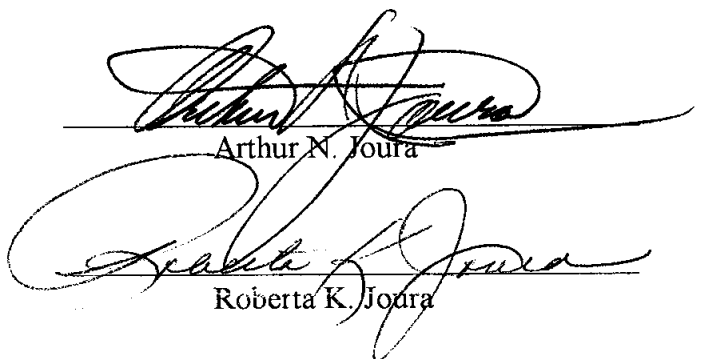 Arthur N. Joura
Arthur N. Joura
Roberta K. Joura
Roberta K. Joura